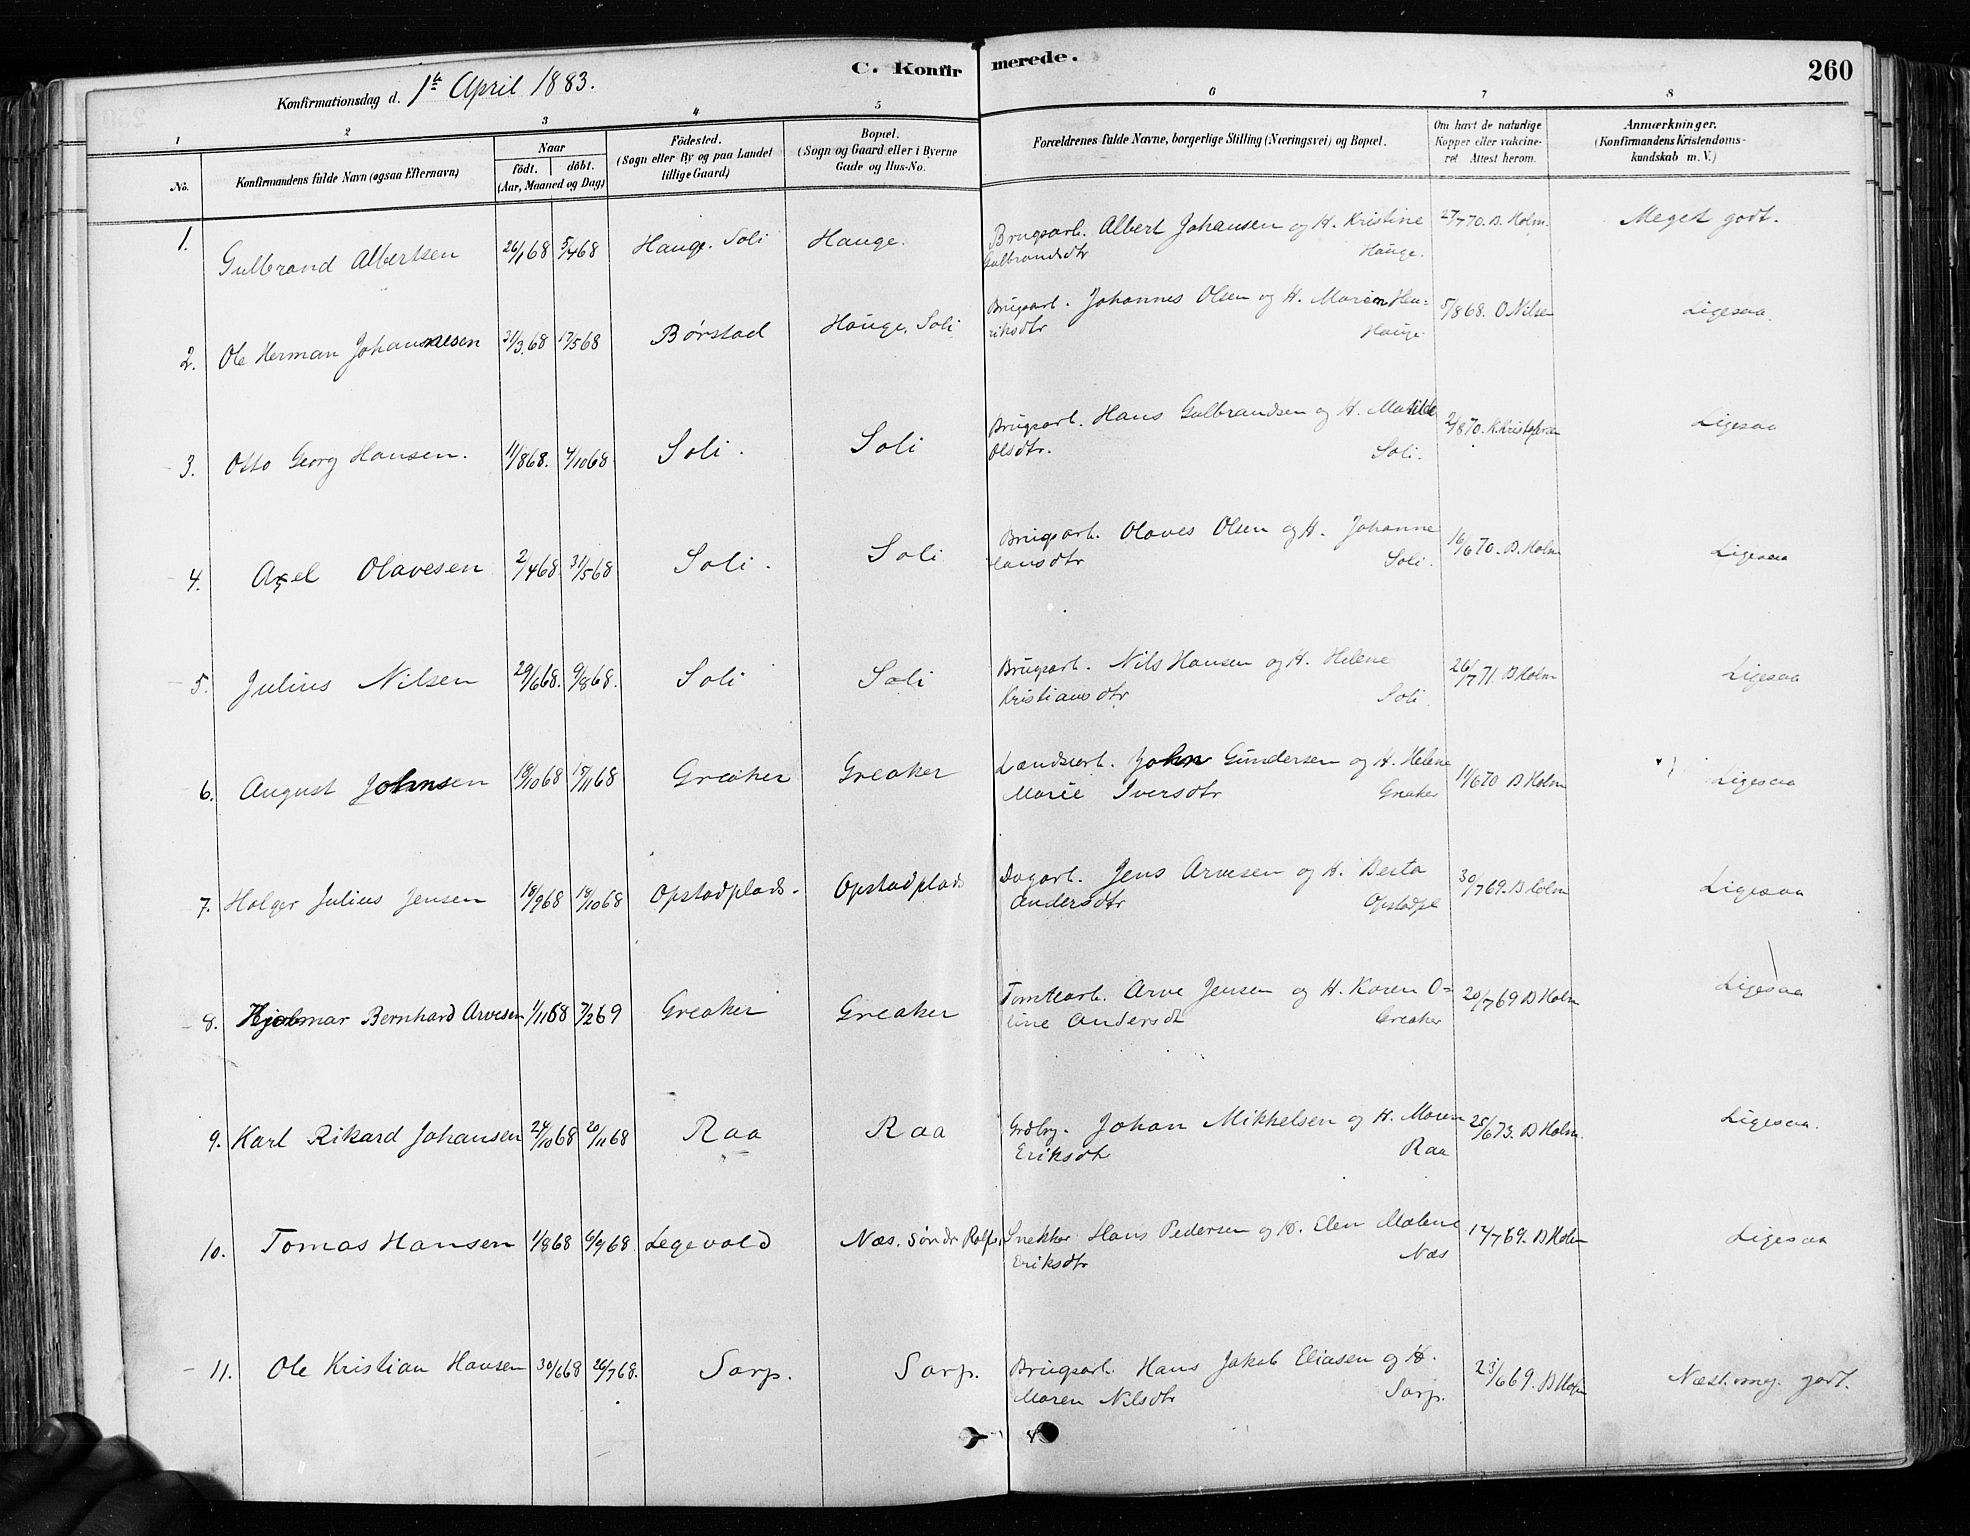 C. Konfirmerede.
260
Konfirmationsdag d. 1ste April 1883.
1 2 3 4 5 6 7 8
No.
Konfirmandens fulde Navn (ogsaa Efternavn)
Naar
født. døbt.
(Aar, Maaned og Dag)
Födested.
(Sogn eller By og paa Landet
tillige Gaard)
Bopæl.
(Sogn og Gaard eller i Byerne
Gade og Hus-No.
Forældrenes fulde Navne, borgerlige Stilling (Næringsvei) og Bopæl.
Om havt de naturlige
Kopper eller vakcine-
ret Attest herom.
Anmærkninger.
(Konfirmandens Kristendoms-
kundskab m. V.)
1. Gulbrand Albertsen 26/1 68 5/4 68 Hauge. Soli Hauge. Brugsarb. Albert Johansen og H. Kristine 27/7 70. B. Holm. Meget godt.
Gulbrandsdtr Hauge.
2. Ole Herman Johannesen 31/3. 68 17/5 68 Børstad Hauge, Soli Brugsarb. Johannes Olsen og H. Maren Hen- 5/8 68. O Nilsen Ligesaa.
riksdtr Hauge.
3. Otto Georg Hansen. 11/8 68. 4/10 68 Soli. Soli Brugsarb. Hans Gulbrandsen og H. Matilde 2/8 70. K. Kristofersen Ligesaa
Olsdtr. Soli.
4. Axel Olavesen 2/4 68. 31/5 68 Soli. Soli Brugsarb. Olaves Olsen og H. Johanne 16/6 70. B. Holm Ligesaa
Hansdtr Soli.
5. Julius Nilsen 29/6 68. 9/8 68. Soli Soli Brugsarb. Nils Hansen og H. Helene 26/7 71. B Holm Ligesaa
Kristiansdtr Soli.
6. August Johnsen 18/10 68 15/11 68 Greaker Greaker Landsarb. John Gundersen og H. Helene 11/6 70 B Holm Ligesaa
Marie Iversdtr Greaker
7. Holger Julius Jensen 18/9 68 18/10 68 Opstadplads. Opstadplads Dagarb. Jens Arvesen og H. Berta 30/7 69. B Holm Ligesaa
Andersdtr Opstadpl
8. Hjalmar Bernhard Arvesen 1/11 68 7/2 69 Greaker Greaker Tomtearb. Arve Jensen og H. Karen O- 20/7 69 B Holm Ligesaa
line Andersdt Greaker
9. Karl Rikard Johansen 24/10 68 20/11 68 Raa Raa Grdbr. Johan Mikkelsen og H. Maren 25/6 73. B Holm. Ligesaa.
Eriksdtr Raa
10. Tomas Hansen 1/8 68 6/9 68 Legevold Næs. Søndr Rolfs. Snekker Hans Pedersen og H. Elen Malene 12/7 69. B Holm Ligesaa
Eriksdtr Næs
11. Ole Kristian Hansen 30/6 68 26/7 68. Sarp. Sarp. Brugsarb. Hans Jakob Eliasen og H. 23/6 69. B Holm Næst. meg. godt.
Maren Nilsdtr Sarp.